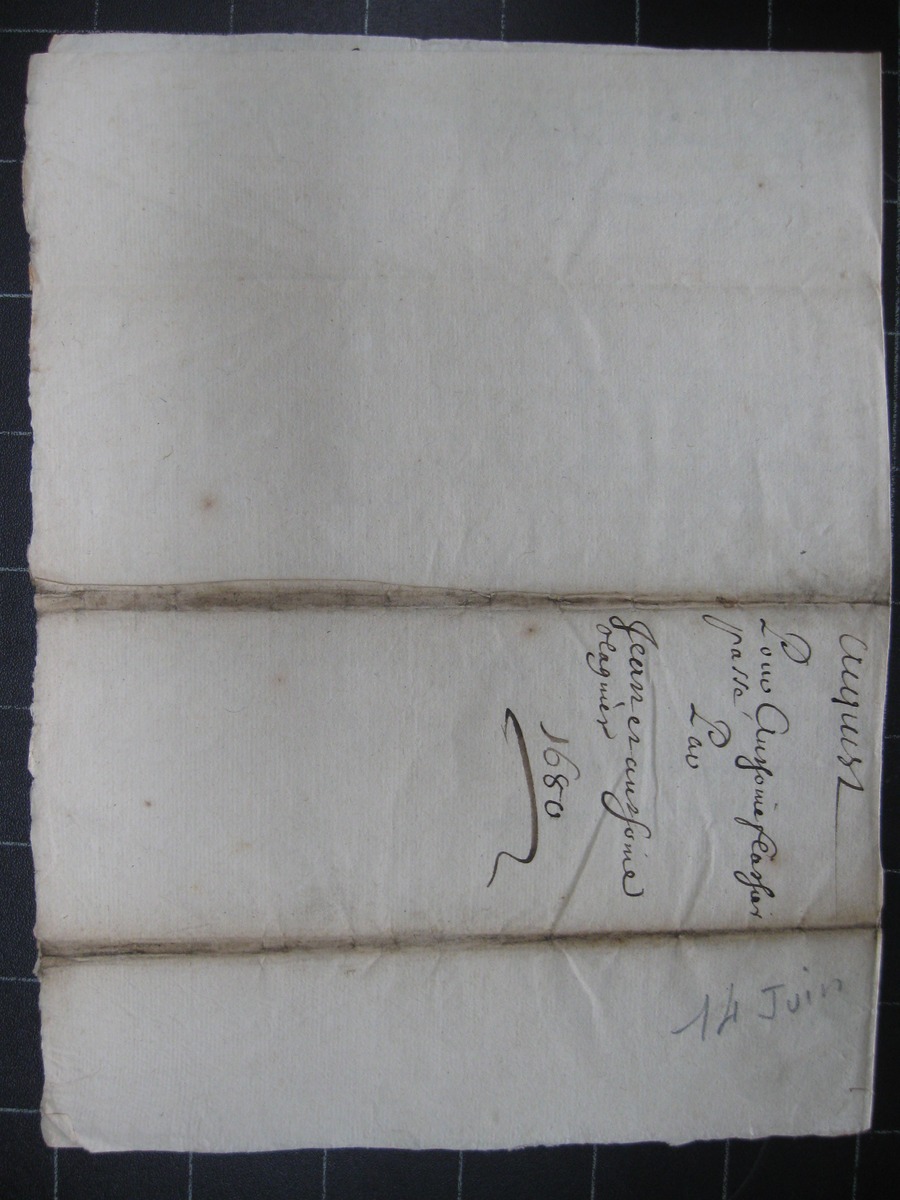 acquest
Pour Anthoine flachas
passé Par
Jean et anthoine
olagnier
1680
14 Juin